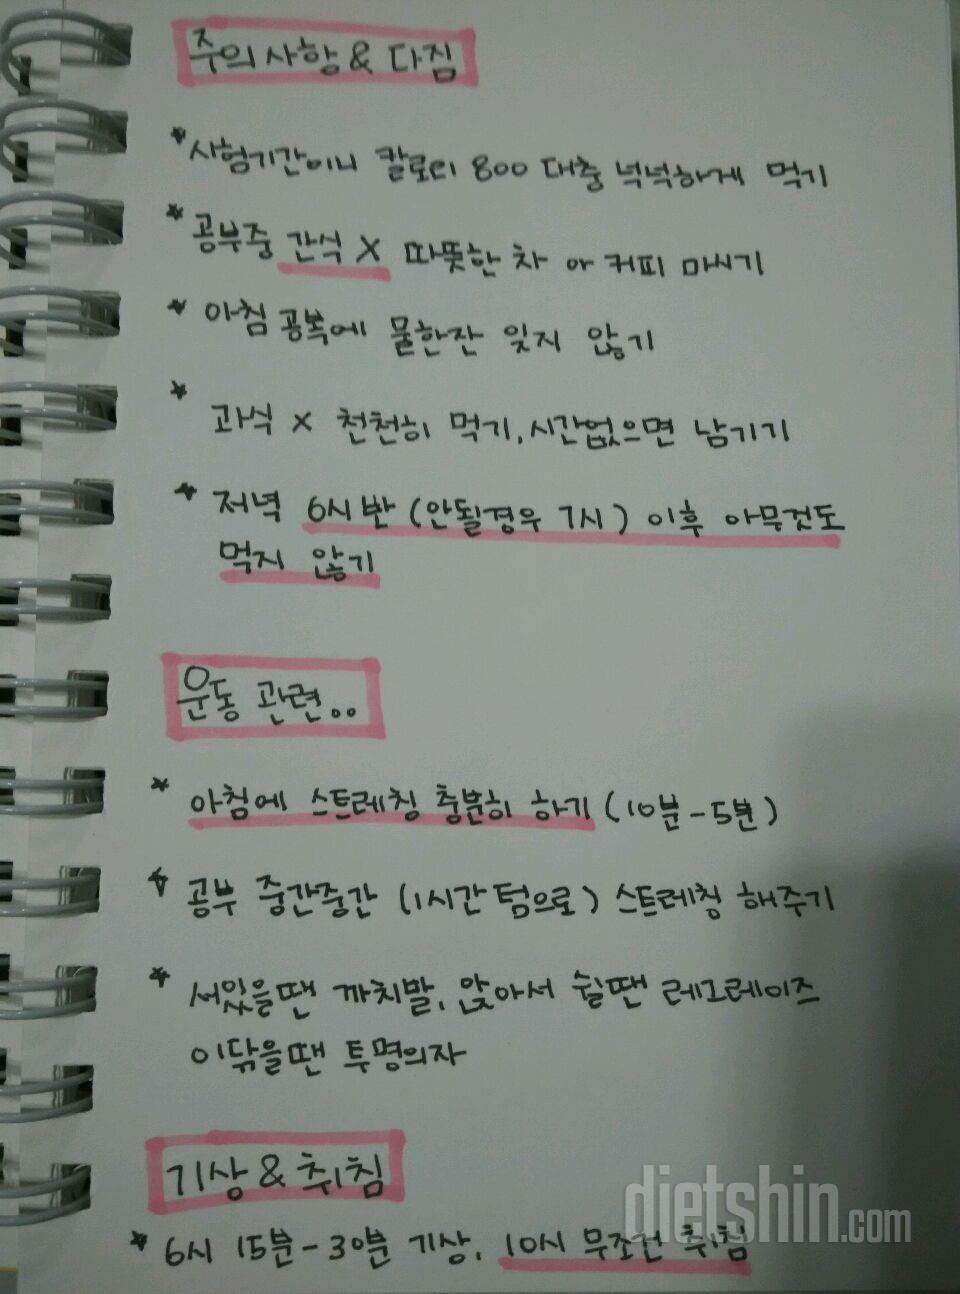 주의사항 & 다짐
* 시험기간이니 칼로리 800 대충 넉넉하게 먹기
* 공부중 간식 X 따뜻한 차 or 커피 마시기
* 아침 공복에 물한잔 잊지 않기
* 과식 X 천천히 먹기, 시간없으면 남기기
* 저녁 6시반 (안될경우 7시) 이후 아무것도
먹지 않기
운동 관련..
* 아침에 스트레칭 충분히 하기 (10분-5분)
* 공부 중간중간 (1시간 텀으로) 스트레칭 해주기
* 서있을땐 까치발, 앉아서 쉴땐 레그레이즈
이닦을땐 투명의자
기상 & 취침
* 6시 15분-30분 기상, 10시 무조건 취침
dietshin.com